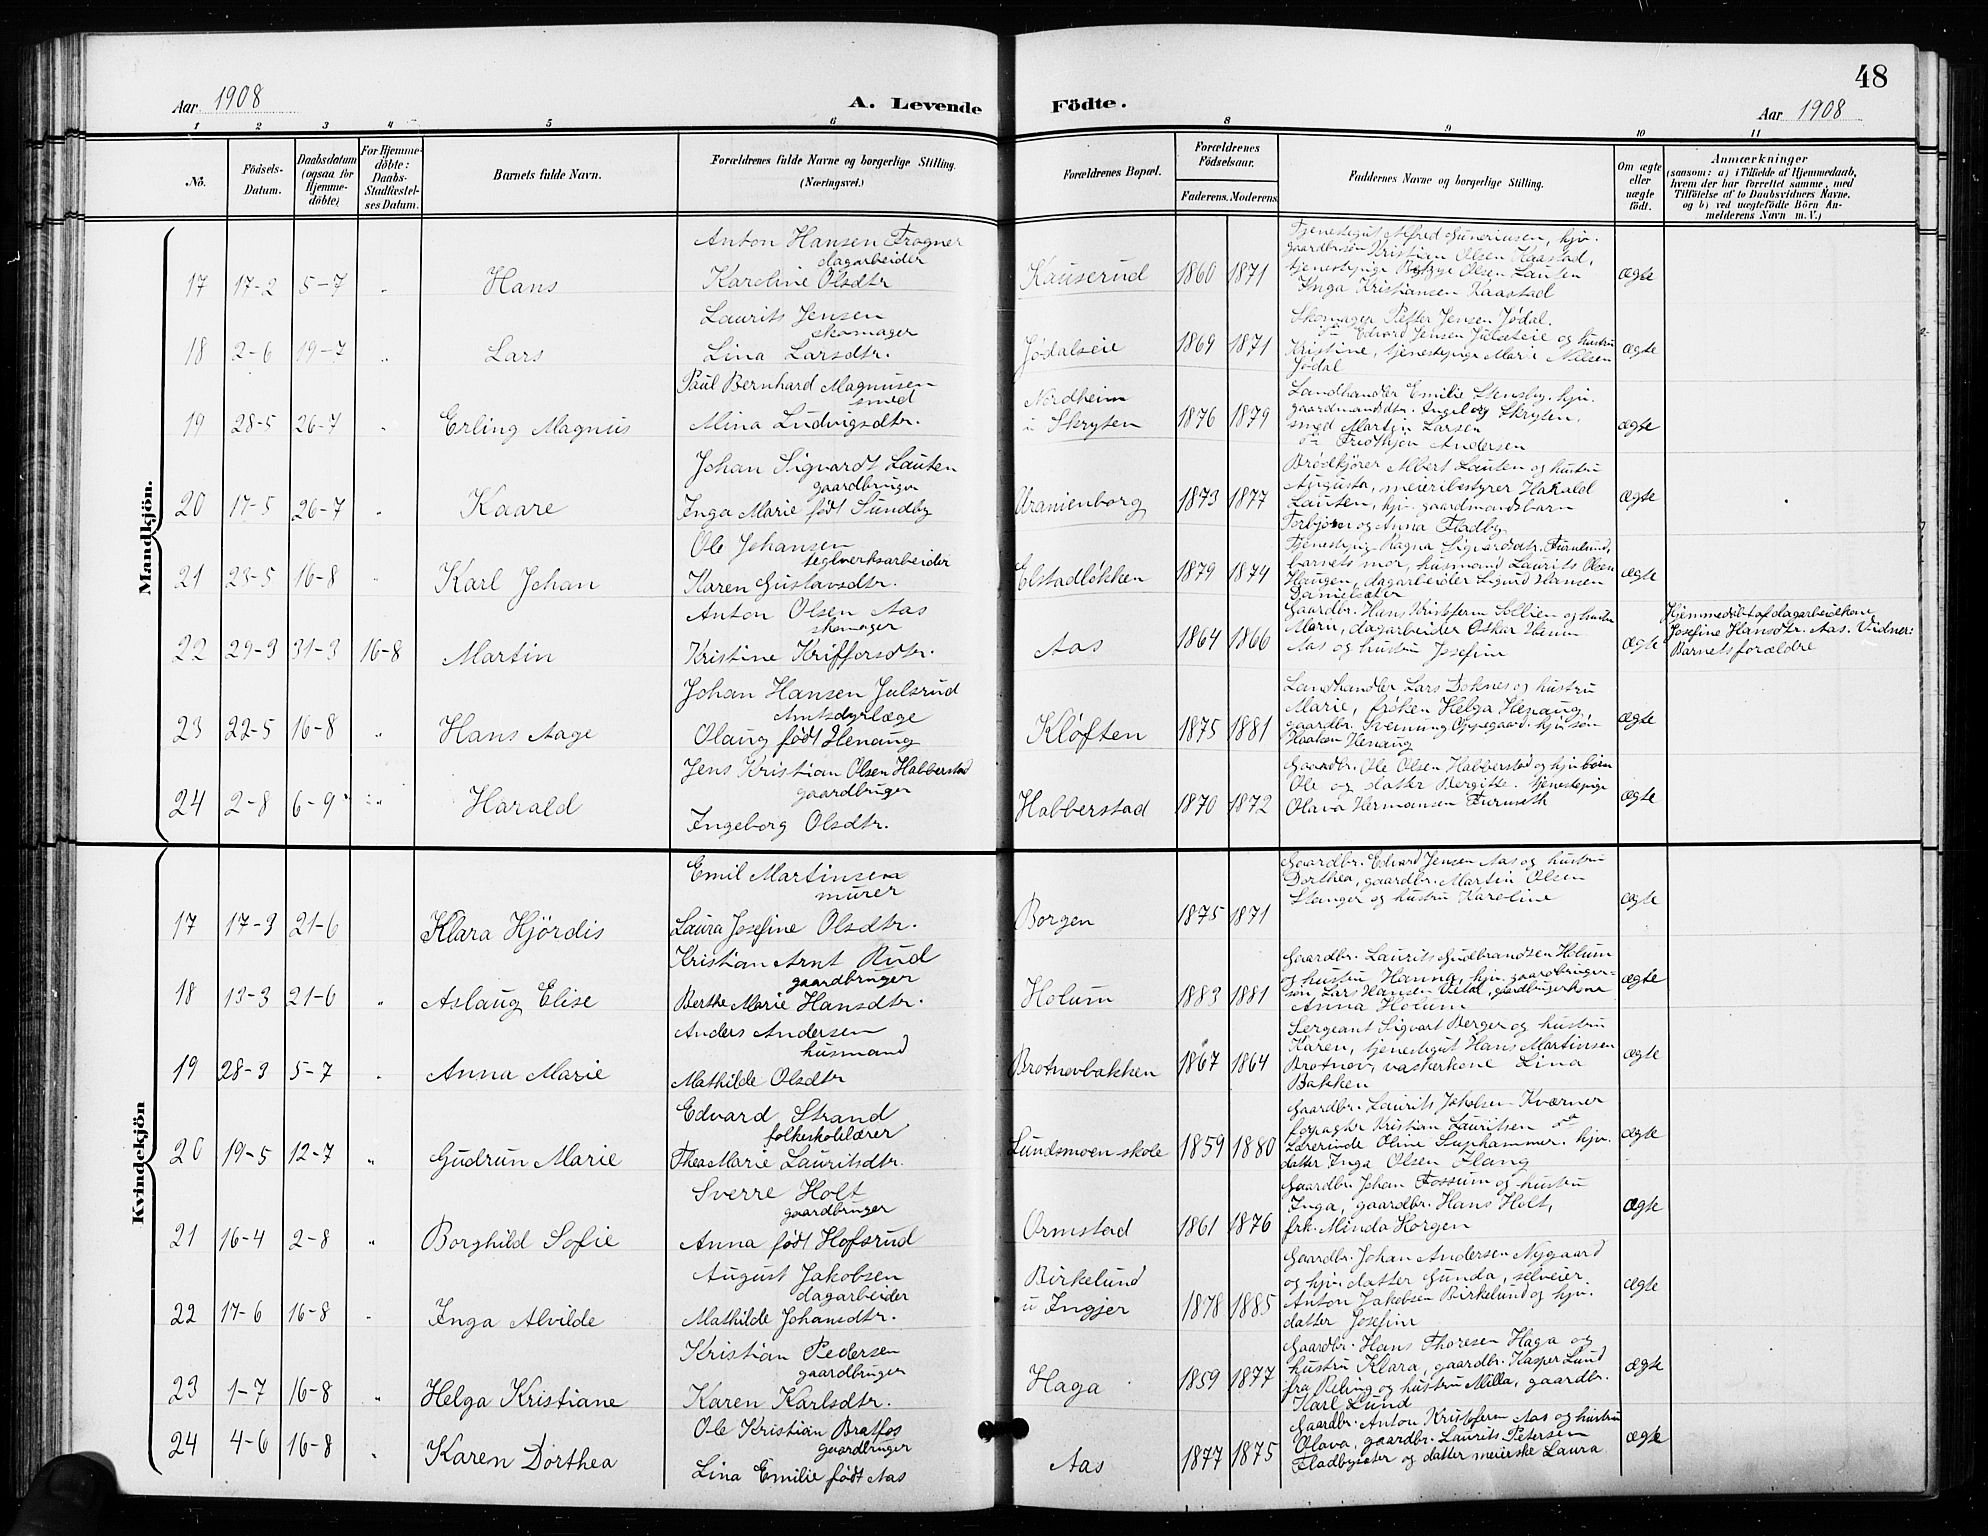 48
Aar 1908
A. Levende Födte.
Aar 1908
1 2 3 4 5 6 8 9 10 11
No.
Födsels-Datum.
Daabsdatum (ogsaa for Hjemmedöbte)
For Hjemmedöbte: Daabs-Stadfæstelses Datum.
Barnets fulde Navn.
Forældrenes fulde Navne og borgerlige Stilling. (Næringsvei.)
Forældrenes Bopæl.
Forældrenes Födselsaar.
Faderens. Moderens.
Faddernes Navne og borgerlige Stilling.
Om ægte eller uægte födt.
Anmærkninger
(saasom: a) i Tilfælde af Hjemmedaab,
hvem der har forrettet samme, med
Tilföielse af to Daabsvidners Navne,
og b) ved uægtefödte Börn An-
melderens Navn m. V.)
Mandkjön.
Anton Hansen Frogner
dagarbeider
17 17-2 5-7 " Hans Karoline Olsdtr Kauserud 1860 1871 ægte
Tjenestegut Alfred Guneriusen, hjv.
gaardbrsøn Kristian Olsen Kaastad,
tjenestepige Olsen Lauten
Inga Kristiansen Kaastad
Laurits Jensen
skomager
18 2-6 19-7 " Lars Lina Larsdtr. Jødalseie 1869 1871 ægte
Skomager Petter Jensen Jødal.
Edvard Jensen Julseie og hustru
Kristine, tjenestepige Marie Nilsen
Jødal
Paul Bernhard Magnusen
smed
19 28-5 26-7 " Erling Magnus Mina Ludvigsdtr. Nordheim u Skryten 1876 1879 ægte
Landhandler Emilie Stensby, hjv.
gaardmanddtr. Ingeborg Skryten,
smed Martin Larsen
Fridthjov Andersen
Johan Sigvardt Lauten
gaardbruger
20 17-5 26-7 " Kaare Inga Marie født Sundby Uranienborg 1873 1877 ægte
Brødkjører Albert Lauten og hustru
Augusta, meieribestyrer Harald
Lauten, hjv. gaardmandsbarn
Torbjørn og Anna Fladby
Ole Johansen
teglverksarbeider
21 23-5 16-8 " Karl Johan Karen Gustavsdtr. Elstadløkken 1879 1874 ægte
Tjenestepig Ragna Sigvardsdtr. Furulund,
barnets mor, husmand Laurits Olsen
Haugen, dagarbeider Sigurd Hansen
Danielsæter
Anton Olsen Aas
skomager
22 29-3 31-3 16-8 Martin Kristine Kriffersdtr. Aas 1864 1866 ægte
Gaardbr. Hans Kristofferm og hustru
Marie, dagarbeider Oskar
Aas og hustru Josefine
Hjemmedöbt af dagarbeiderkone
Josefine Hansdtr. Aas. Vidner:
Barnets forældre
Johan Hansen Julsrud
Amtsdyrlæge
23 22-5 16-8 " Hans Aage Olaug født Henaug Kløften 1875 1881 ægte
Landhandler Lars Doknes og hustru
Marie, frøken Helga Henaug
gaardbr. Svenning Oppegaard. hjv. søn
Haakon Henaug
Jens Kristian Olsen Habberstad
gaardbruger
24 2-8 6-9 " Harald Ingeborg Olsdtr. Habberstad 1870 1872 ægte
Gaardbr. Ole Olsen Habberstad og hjv. børn
Ole og datter Bergitte. tjenestepige
Olava Hermansen Furuseth
Kvindekjön
Emil Martinsen
murer
17 17-3 21-6 Klara Hjördis Laura Josefine Olsdtr. Borgen 1875 1871 ægte
Gaardbr. Edvard Jensen Aas og hustru
Dorthea, gaardbr. Martin Olsen
Stanger og hustru Karoline
Kristian Arnt Rud
gaardbruger
18 13-3 21-6 " Aslaug Elise Berthe Marie Hansdtr. Holum 1883 1881 ægte
Gaardbr. Laurits Gudbrandsen Holum
og hustru Hanna, hjv. gaardbruger-
søn Lars Hansen gaardbrugerkone
Anna Holum
Anders Andersen
husmand
19 28-3 5-7 " Anna Marie Mathilde Olsdtr Brotnovbakken 1867 1864 ægte
Sergeant Sigvart Berger og hustru
Karen, tjenestegut Hans Martinsen
Brotnov, vaskerkone Lina
Bakken
Edvard Strand
folkeskolelærer
20 19-5 12-7 " Gudrun Marie Thea Marie Lauritsdtr. Lundsmoen skole 1859 1880 ægte
Gaardbr. Laurits Jakobsen Kværner
forpagter Kristian Lauritsen
Lærerinde Oline Suphammer. hjv.
datter Inga Olsen Flaug
Sverre Holt
gaardbruger
21 16-4 2-8 " Borghild Sofie Anna født Hofsrud Ormstad 1861 1876 ægte
Gaardbr. Johan Fossum og hustru
Inga, gaardbr. Hans Holt,
frk. Minda Horgen
August Jakobsen
dagarbeider
22 17-6 16-8 " Inga Alvilde Mathilde Johansdtr. Birkelund u Ingjer 1878 1885 ægte
Gaardbr. Johan Andersen Nygaard
og hjv. datter Gunda, selveier
Anton Jakobsen Birkelund og hjv.
datter Josefine
Kristian Pedersen
gaardbruger
23 1-7 16-8 " Helga Kristiane Karen Karlsdtr. Haga 1859 1877 ægte
Gaardbr. Hans Thoresen Haga og
hustru Klara, gaardbr. Kasper Lund
fra Reling og hustru Milla, gaardbr.
Karl Lund
Ole Kristian Bratfos
gaardbruger
24 4-6 16-8 " Karen Dorthea Lina Emilie født Aas Aas 1877 1875 ægte
Gaardbr. Anton Kristoffersen Aas og hustru
Olava, gaardbr. Laurits Petersen
Fladbysæter og datter meierske Laura